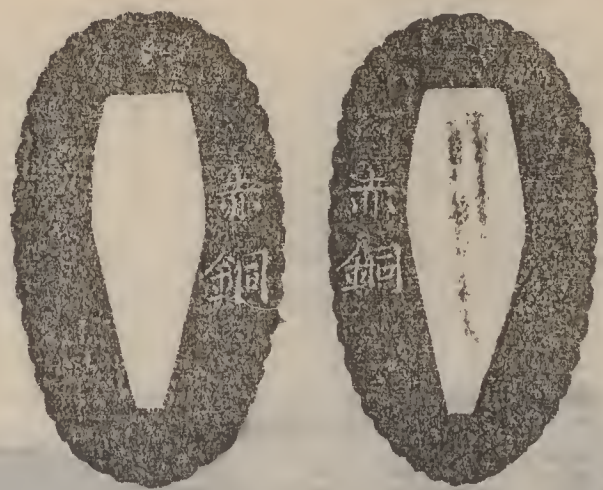 赤銅
赤銅